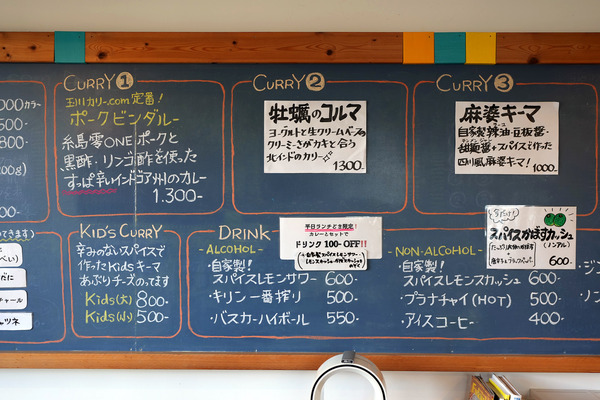 CURRY 1
玉川カリー.com定番!
ポークビンダルー
糸島雫ONEポークと
黒酢・リンゴ酢を使った
すっぱ辛いインドゴア州のカレー
1.300-
CURRY 2
牡蠣のコルマ
ヨーグルトと生クリームベースの
クリーミーさがカキと合う
北インドのカリー
1300-
CURRY 3
麻婆キーマ
自家製辣油・豆板醤・
甜麺醤+スパイスで作った
四川風麻婆キーマ!
1000-
000カラー
500-
800-
00g)
できます)
KID'S CURRY
辛みのないスパイスで
作ったKidsキーマ
あぶりチーズのってます
Kids(大) 800-
Kids(小) 500-
DRINK
平日ランチどき限定!
カレーとセットで
ドリンク 100-OFF!!
-ALCOHOL-
・自家製!
スパイスレモンサワー 600-
・キリン一番搾り 500-
・バスカーハイボール 550-
-NON-ALCOHOL-
・自家製!
スパイスレモンスカッシュ 600-
・プラナチャイ(HOT) 500-
・アイスコーヒー 400-
スパイスかぼすカッシュ
(ノンアル)
600-